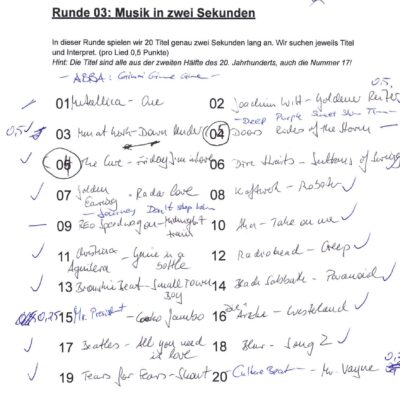 Runde 03: Musik in zwei Sekunden
In dieser Runde spielen wir 20 Titel genau zwei Sekunden lang an. Wir suchen jeweils Titel
und Interpret. (pro Lied 0,5 Punkte)
Hint: Die Titel sind alle aus der zweiten Hälfte des 20. Jahrhunderts, auch die Nummer 17!
- ABBA: Gimme Gimme Gimme -
0,5
01 Metallica - One
02 Joachim Witt - Goldener Reiter
- Deep Purple
0,5
03 Men at Work - Down Under
04 Doors Riders of the Storm -
05 The Cure - Friday I'm in Love
06 Dire Straits - Sultans of Swing
07 Golden Earring - Radar Love
08 Kraftwerk - Roboter
- Journey Don't stop
09 REO Speedwagon - Midnight train
10 Aha - Take on me
11 Christina Aguilera - Genie in a bottle
12 Radiohead - Creep
13 Bronski Beat - Small Town Boy
14 Black Sabbath - Paranoid
0,25 15 Mr. President - Coco Jambo
16 Die Ärzte - Westerland
17 Beatles - All you need is love
18 Blur - Song 2
19 Tears for Fears - Shout
20 Culture Beat - Mr. Vayne